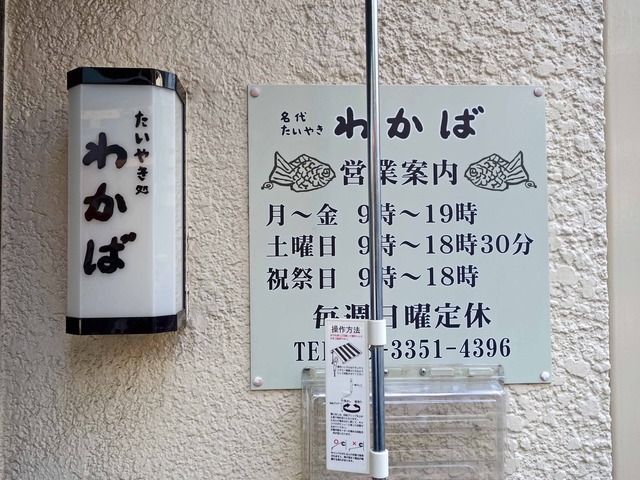 たいやき処
わかば
名代
たいやき
わかば
営業案内
月～金 9時～19時
土曜日 9時～18時30分
祝祭日 9時～18時
毎週日曜定休
TEL -3351-4396
操作方法